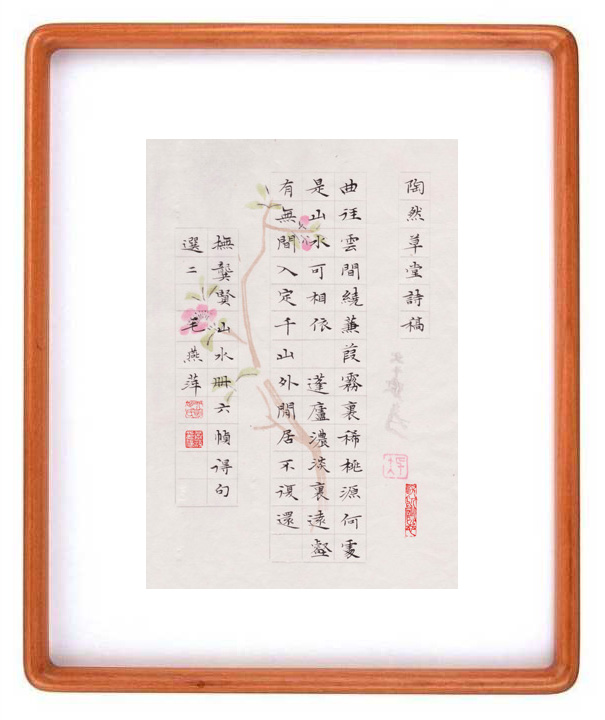 陶然草堂詩稿
曲徑雲間繞蒹葭霧裏稀桃源何處
是山水可相依 蓬廬濃淡裏遠壑
有無間入定千山外閒居不復還
撫龔賢山水冊六幀得句
選二 毛燕萍